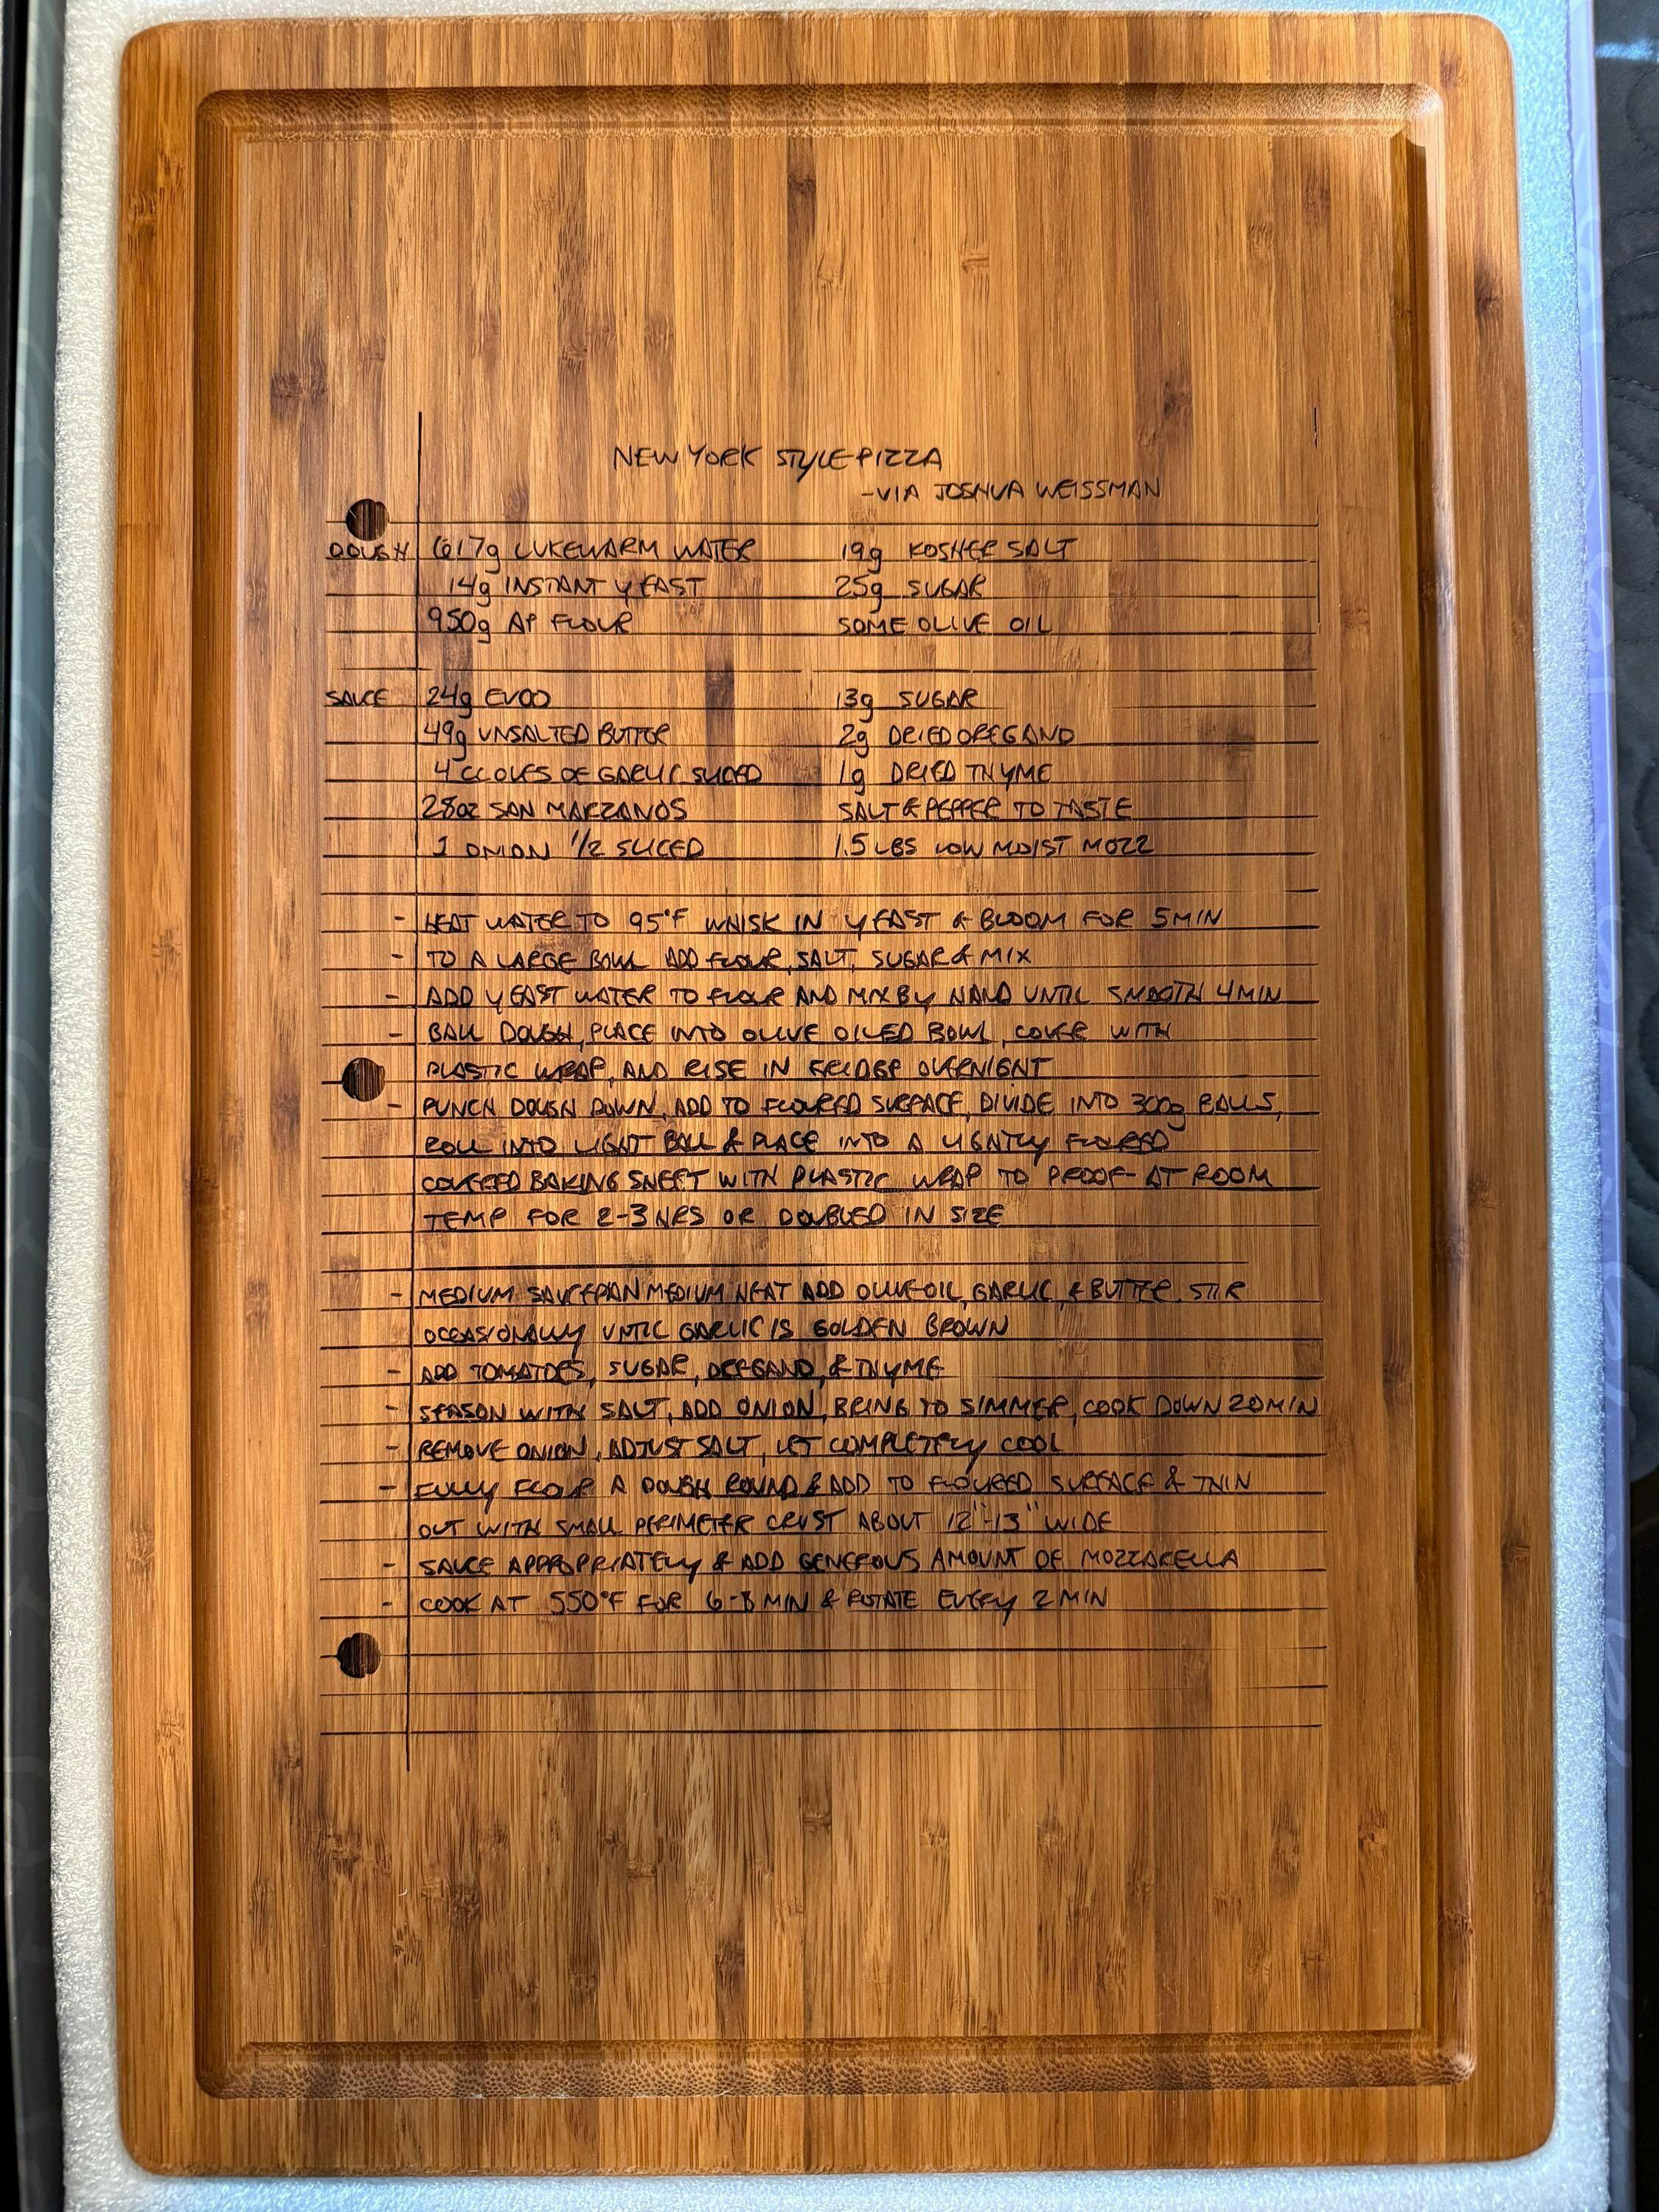 NEW YORK STYLE PIZZA
-VIA JOSHUA WEISSMAN
DOUGH 617g LUKEWARM WATER 19g KOSHER SALT
14g INSTANT YEAST 25g SUGAR
950g AP FLOUR SOME OLIVE OIL
SAUCE 24g EVOO 13g SUGAR
49g UNSALTED BUTTER 2g DRIED OREGANO
4 CLOVES OF GARLIC SLICED 1g DRIED THYME
28oz SAN MARZANOS SALT & PEPPER TO TASTE
1 ONION 1/2 SLICED 1.5 LBS LOW MOIST MOZZ
- HEAT WATER TO 95°F WHISK IN YEAST & BLOOM FOR 5 MIN
- TO A LARGE BOWL ADD FLOUR, SALT, SUGAR & MIX
- ADD YEAST WATER TO FLOUR AND MIX BY HAND UNTIL SMOOTH 4 MIN
- BALL DOUGH, PLACE INTO OLIVE OILED BOWL, COVER WITH
PLASTIC WRAP, AND RISE IN FRIDGE OVERNIGHT
- PUNCH DOUGH DOWN, ADD TO FLOURED SURFACE, DIVIDE INTO 300g BALLS,
ROLL INTO LIGHT BALL & PLACE INTO A LIGHTLY FLOURED
COVERED BAKING SHEET WITH PLASTIC WRAP TO PROOF- AT ROOM
TEMP FOR 2-3 HRS OR DOUBLED IN SIZE
- MEDIUM SAUCEPAN MEDIUM HEAT ADD OLIVE OIL, GARLIC, & BUTTER. STIR
OCCASIONALLY UNTIL GARLIC IS GOLDEN BROWN
- ADD TOMATOES, SUGAR, OREGANO, & THYME
- SEASON WITH SALT, ADD ONION, BRING TO SIMMER, COOK DOWN 20 MIN
- REMOVE ONION, ADJUST SALT, LET COMPLETELY COOL
- FULLY FLOUR A DOUGH ROUND & ADD TO FLOURED SURFACE & THIN
OUT WITH SMALL PERIMETER CRUST ABOUT 12"-13" WIDE
- SAUCE APPROPRIATELY & ADD GENEROUS AMOUNT OF MOZZARELLA
- COOK AT 550°F FOR 6-8 MIN & ROTATE EVERY 2 MIN